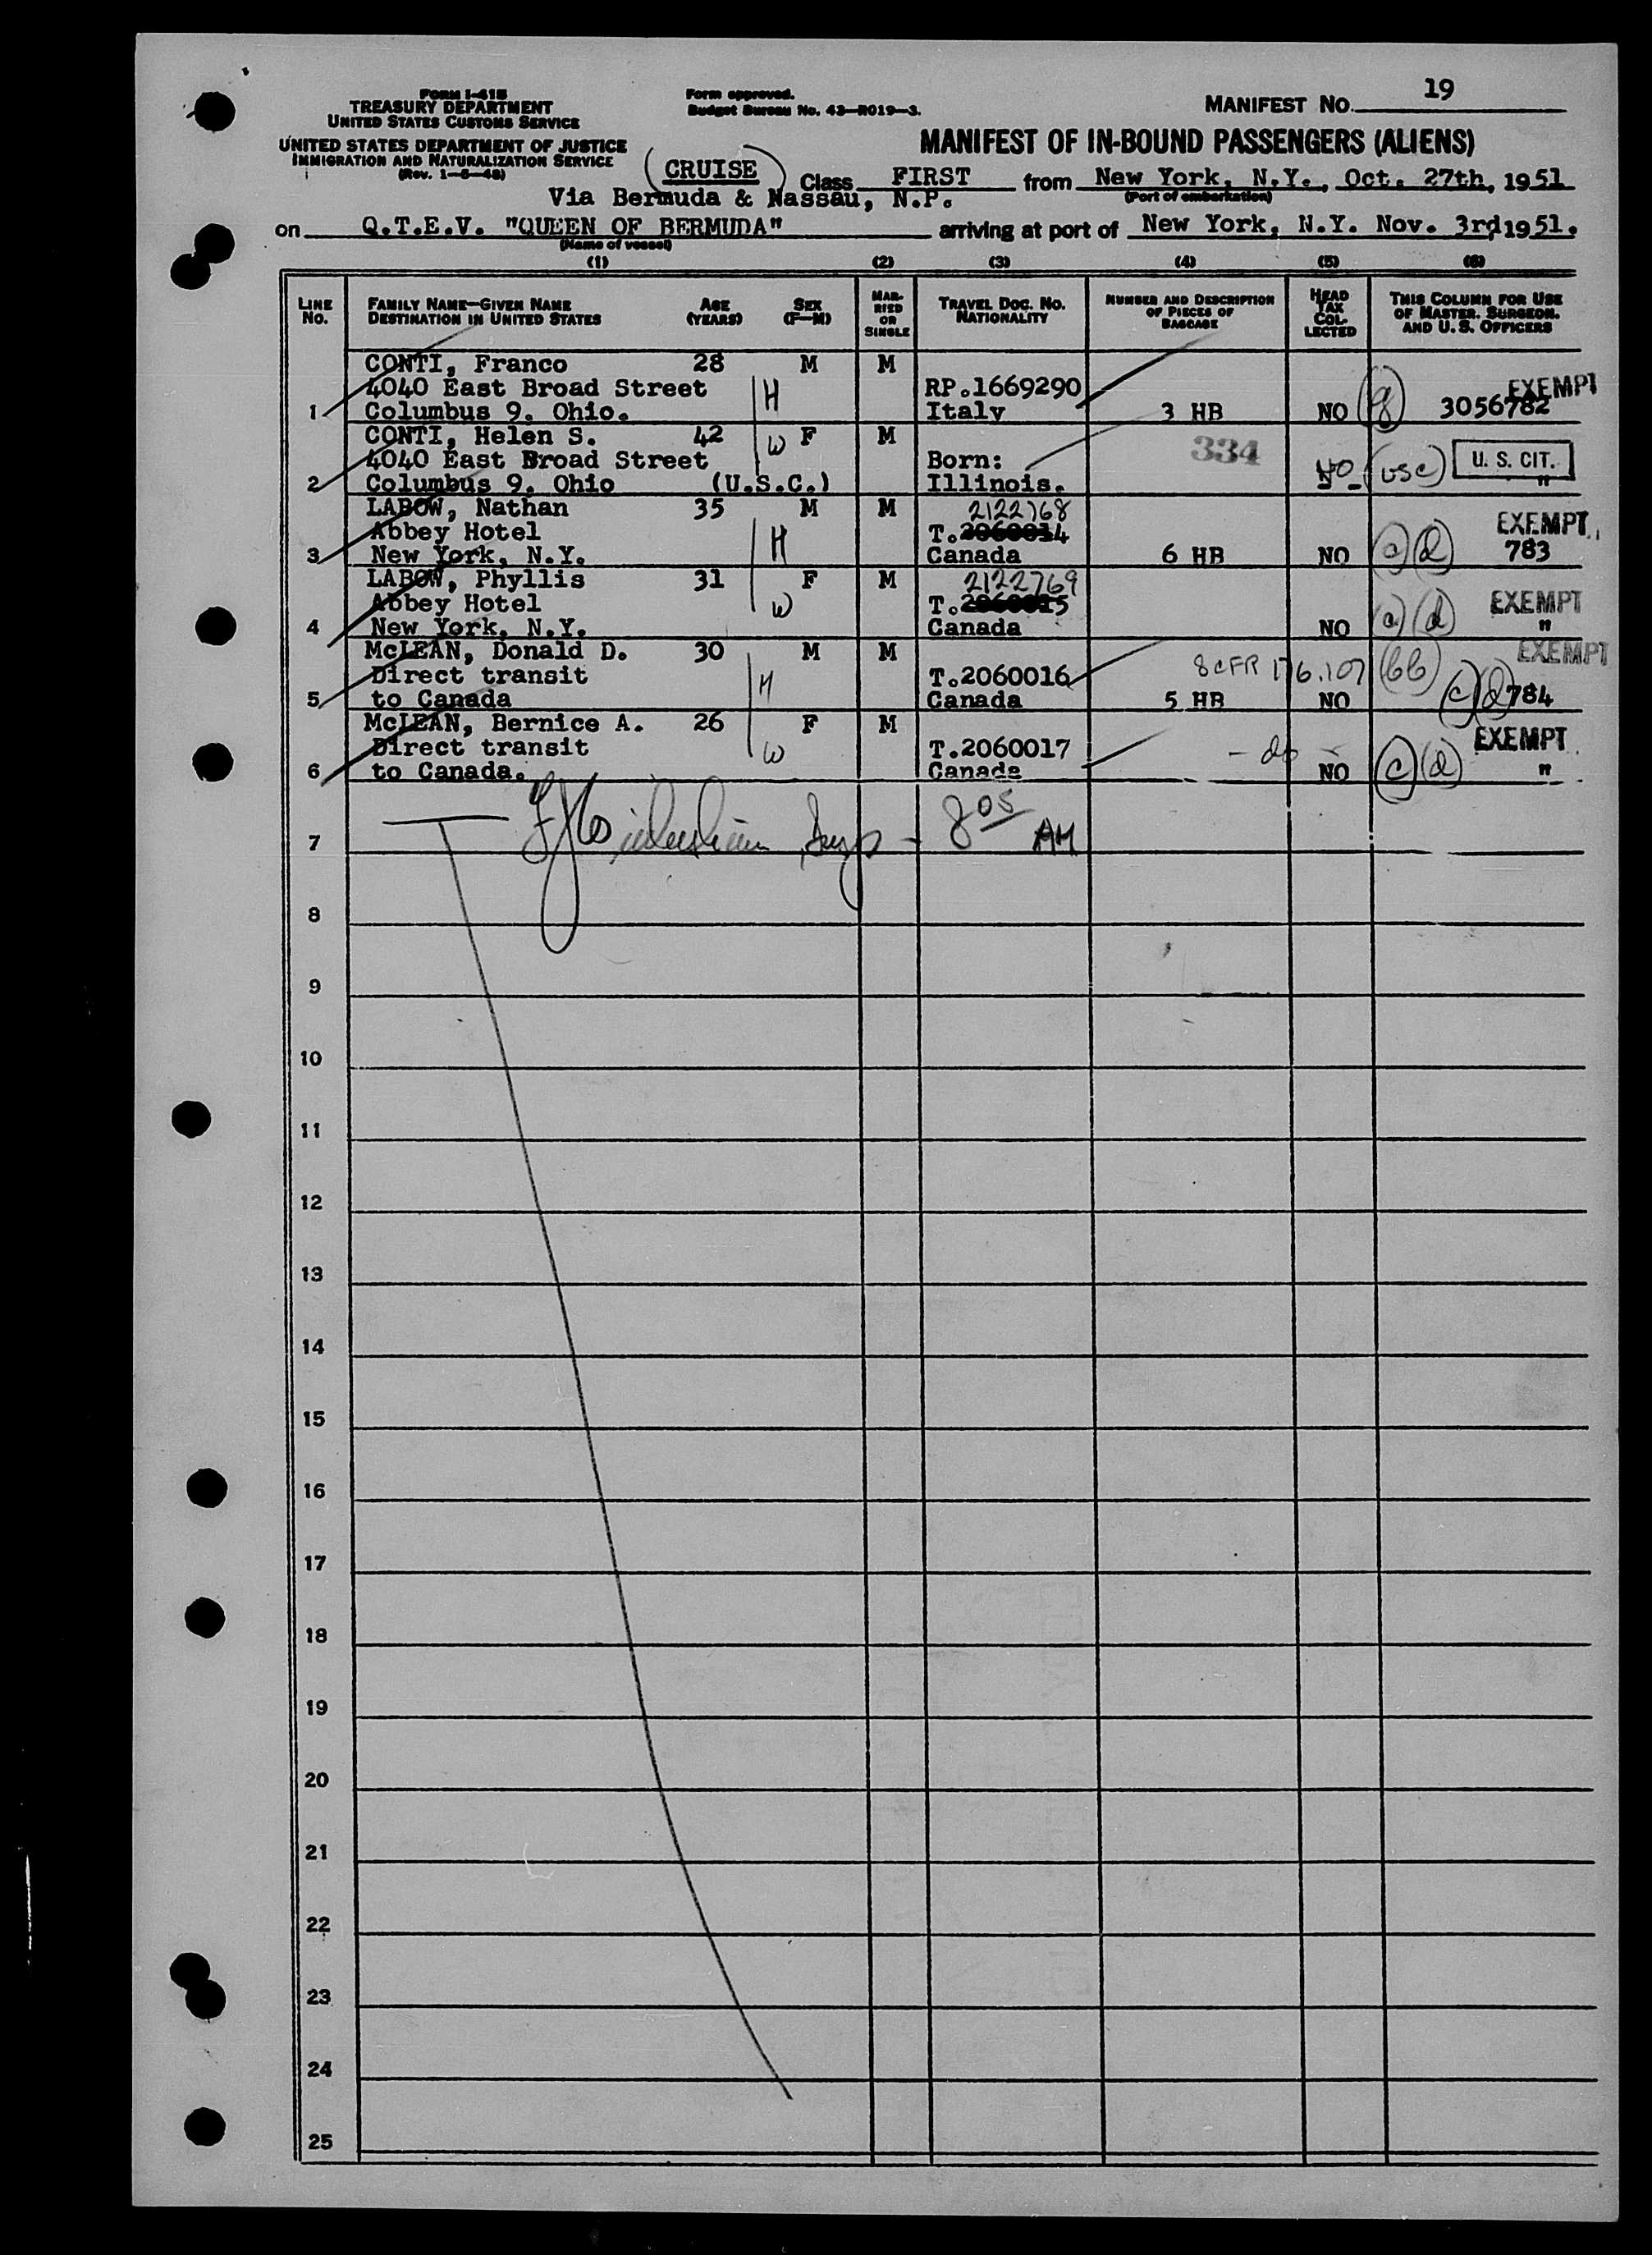 Form I-415
TREASURY DEPARTMENT
UNITED STATES CUSTOMS SERVICE
UNITED STATES DEPARTMENT OF JUSTICE
IMMIGRATION AND NATURALIZATION SERVICE
Form approved.
Budget Bureau No. 43—R019—3.
MANIFEST NO. 19
MANIFEST OF IN-BOUND PASSENGERS (ALIENS)
(CRUISE) Class FIRST from New York, N.Y., Oct. 27th, 1951
(Port of embarkation)
Via Bermuda & Nassau, N.P.
on Q.T.E.V. "QUEEN OF BERMUDA" arriving at port of New York, N.Y. Nov. 3rd, 1951.
(Name of vessel)
(1) (2) (3) (4) (5) (6)
LINE NO. FAMILY NAME—GIVEN NAME DESTINATION IN UNITED STATES AGE (YEARS) SEX (F—M) MARRIED OR SINGLE TRAVEL DOC. NO. NATIONALITY NUMBER AND DESCRIPTION OF PIECES OF BAGGAGE HEAD TAX COLLECTED THIS COLUMN FOR USE OF MASTER, SURGEON, AND U. S. OFFICERS
CONTI, Franco 28 M M
4040 East Broad Street H RP.1669290 EXEMPT
1 Columbus 9, Ohio. Italy 3 HB NO (g) 3056782
CONTI, Helen S. 42 W F M 334
4040 East Broad Street Born: NO (USC) U. S. CIT.
2 Columbus 9, Ohio (U.S.C.) Illinois. "
LABOW, Nathan 35 M M 2122768
Abbey Hotel H T.2060014 EXEMPT
3 New York, N.Y. Canada 6 HB NO (c)(d) 783
LABOW, Phyllis 31 F M 2122769
Abbey Hotel W T.2060015 EXEMPT
4 New York, N.Y. Canada NO (c)(d) "
McLEAN, Donald D. 30 M M EXEMPT
Direct transit H T.2060016 8 CFR 176.107 (bb)
5 to Canada Canada 5 HB NO (c)(d) 784
McLEAN, Bernice A. 26 F M EXEMPT
Direct transit W T.2060017 - do -
6 to Canada. Canada NO (c)(d) "
7 8 05 AM
8
9
10
11
12
13
14
15
16
17
18
19
20
21
22
23
24
25